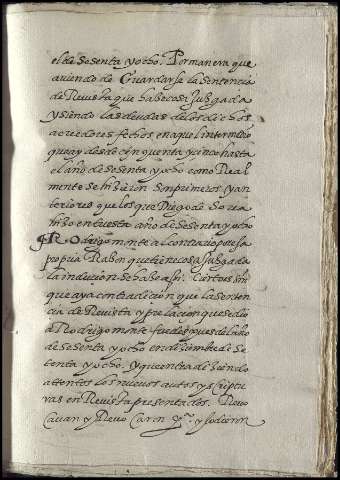 el de sesenta y ocho. Por manera que
aviendo de Guardarse la sentencia
de Revista que hase cosa Juzgada
y siendo las deudas de los dichos
acreedores fechos en aquel intermedio
que ay desde cinquenta y cinco hasta
el año de sesenta y ocho como Real
mente se hizieron son primeros y an
teriores que los que Diego de Soria
hizo en este año de sesenta y ocho
Rodrigo monte al contrario por esta
propia Raçon que tiene cosa Juzgada
la induçion se hase assi. Cierto es sin
que aya contradicion que la senten
cia de Revista y prelacion que se dio
a Rodrigo monte fue despues del año
de sesenta y ocho en diziembre de se
tenta y ocho. Y que contradiziendo
attentos los nuevos autos y scriptu
ras en Revista presentados. Revo
caron y Revocaron y